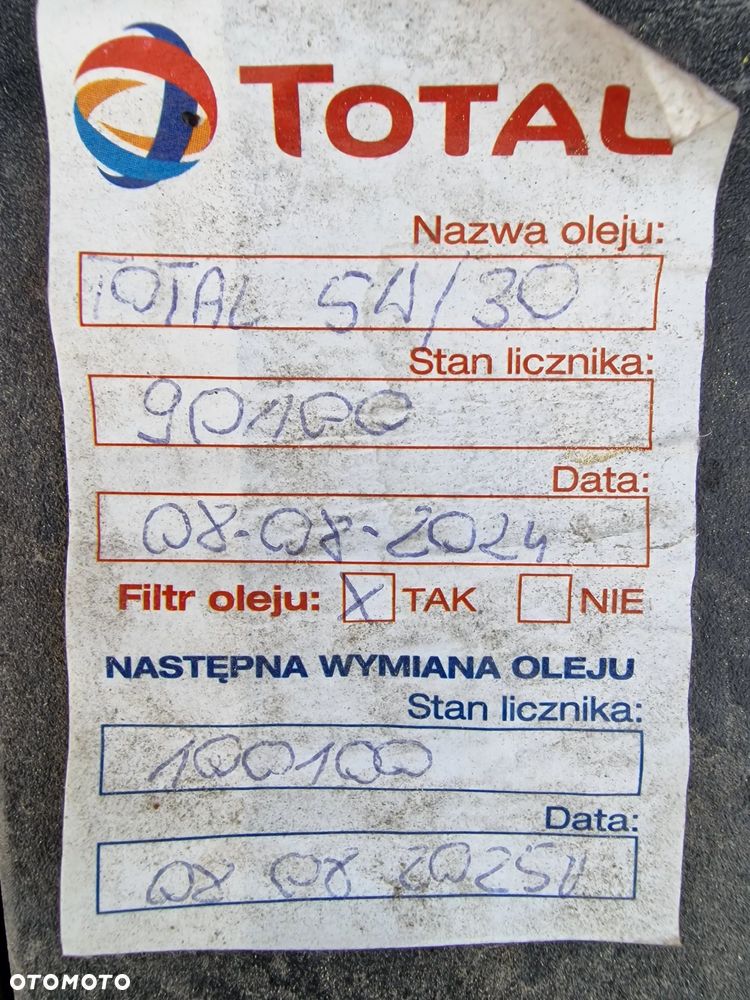 TOTAL
Nazwa oleju:
TOTAL 5W/30
Stan licznika:
90100
Data:
08-08-2024
Filtr oleju: X TAK NIE
NASTĘPNA WYMIANA OLEJU
Stan licznika:
100100
Data:
08 08 2025
OTOMOTO